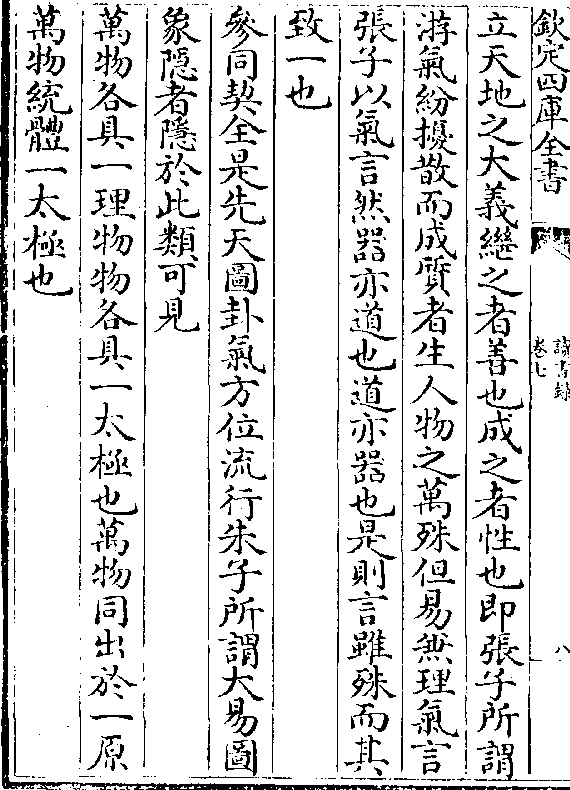 欽定四庫全書
讀書錄
卷七
八
立天地之大義繼之者善也成之者性也即張子所謂
游氣紛擾散而成質者生人物之萬殊但易無理氣言
張子以氣言然器亦道也道亦器也是則言雖殊而其
致一也
參同契全是先天圖卦氣方位流行朱子所謂大易圖
象隱者隱於此類可見
萬物各具一理物物各具一太極也萬物同出於一原
萬物統體一太極也